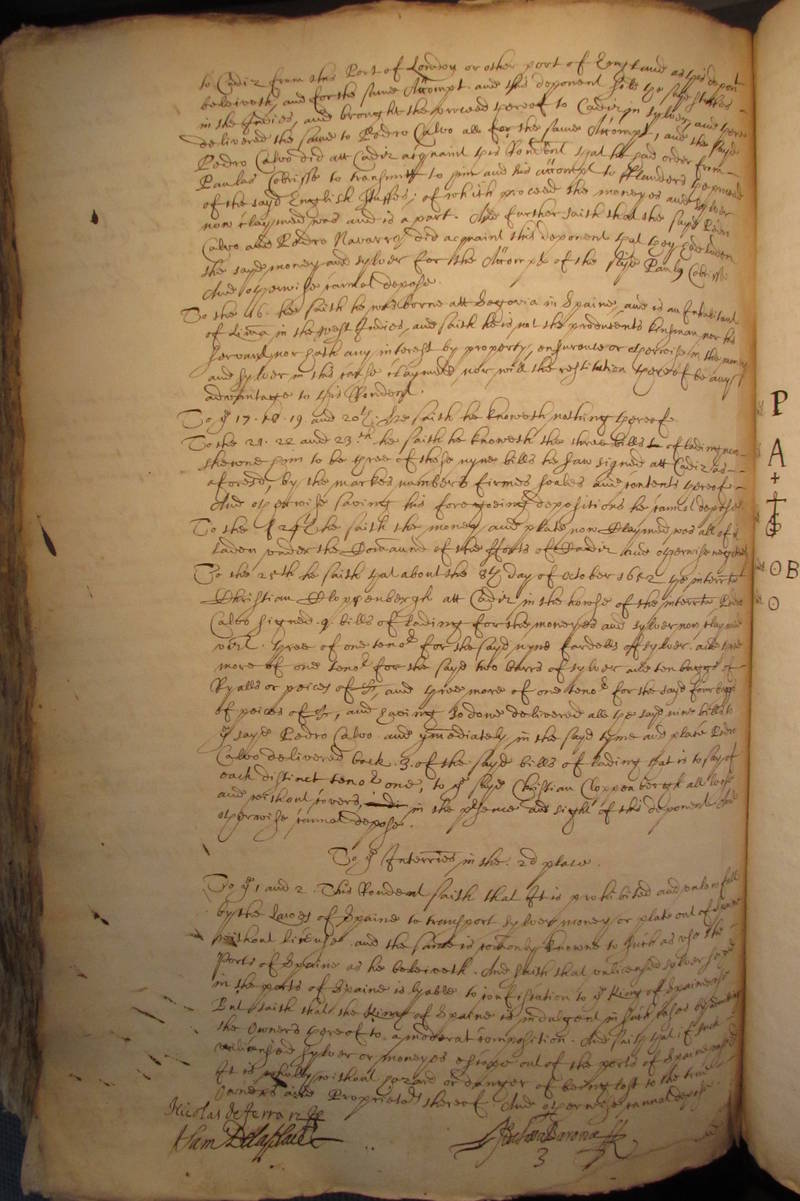 to Cadiz from this Port of London or other port of England as this deponent
beleiveth, and for the same Accompt. and this deponent
in the Indies, and brought the proceed thereof to Cadiz in sylver and there
delivered the same to Pedro Calvo all for the same Accompt, and the sayd
Pedro Calvo did att Cadiz acquaint this Rondent that he had order from
Paulus Cobrisse to transmitt to him and his accompt to Flanders the proceed
of the sayd English stuffes; of which proceed the moneyes and sylver
now claymed was and is a part. And further saith that the sayd Pedro
Calvo and Pedro Navarro did acquaint this deponent that they
the sayd money and sylver for the Accompt of the sayd Paulus Cobrisse
And otherwise cannot depose.
To the 16. hee saith he was borne att Segovia in Spaine, and is an Inhabitant
of Lima in the West Indies, and saith he is not the producents kinsman nor his
servant, nor hath any interest by property, ensurance or otherwise in the money
and sylver in this cause claymed nor will the restitution thereof be any
advantage to this Rondent.
To ye 17. 18. 19. and 20th. he saith he knoweth nothing thereof
To the 21. 22 and 23th he saith he knoweth the three bills of lading now
shewne him to be three of those nyne bills he saw signed att Cadiz as
aforesd, by the markes numbers firmes seales and contents thereof
And otherwise saving his foregoeing depositions he cannot depose
To the 24th he saith the money and plate now Claymed was all of it
laden under the Command of the fforts of Cadiz And otherwise negatively
To the 25th he saith that about the 8th day of October 1652 the interrate
Christian Cloppenbergh att Cadiz in the house of the interrate Pedro
Calvo signed .9. bills of lading for the moneyes and sylver now claymed
vizt. three of one tenor for the sayd nyne fardells of sylver. and three
more of one tenor for the sayd two barrs of sylver and ten baggs of
Ryalls or peices of 8/8, and three more of one tenor for the sayd four baggs
of peices of 8/8, and having so done delivered all the sayd nine bills to
ye sayd Pedro Calvo. and ymediately in the sayd tyme and place Pedro
Calvo delivered back .3. of the sayd bills of lading that is to say of
each distinct tenor one, to ye sayd Christian Cloppenbergh all
and without covers, in the presence and sight of this deponent And
otherwise cannot depose.
To ye Interries in the .2d place.
To ye 1 and 2. This Rondent saith that It is prohibited and unlawfull
by the Lawes of Spaine to transport sylver money or plate out of Spaine
without licence. and the same is comonly knowne to such as use the
Ports of Spaine as he beleiveth. And saith that unlicensed sylver
in the ports of Spaine is lyable to confiscation to ye King of Spaines use
But saith that the King of Spaine is indulgent in such cases
the Owners thereof to a moderat composition. And saith that if such
unlicensed sylver or moneyes escape out of the ports of Spaine
It is wholly without hazard or danger of being lost to the true
Owners and Proprietors thereof. And otherwise cannot depose.
Nicolas de
Sam
3
P
A
+
O B
O